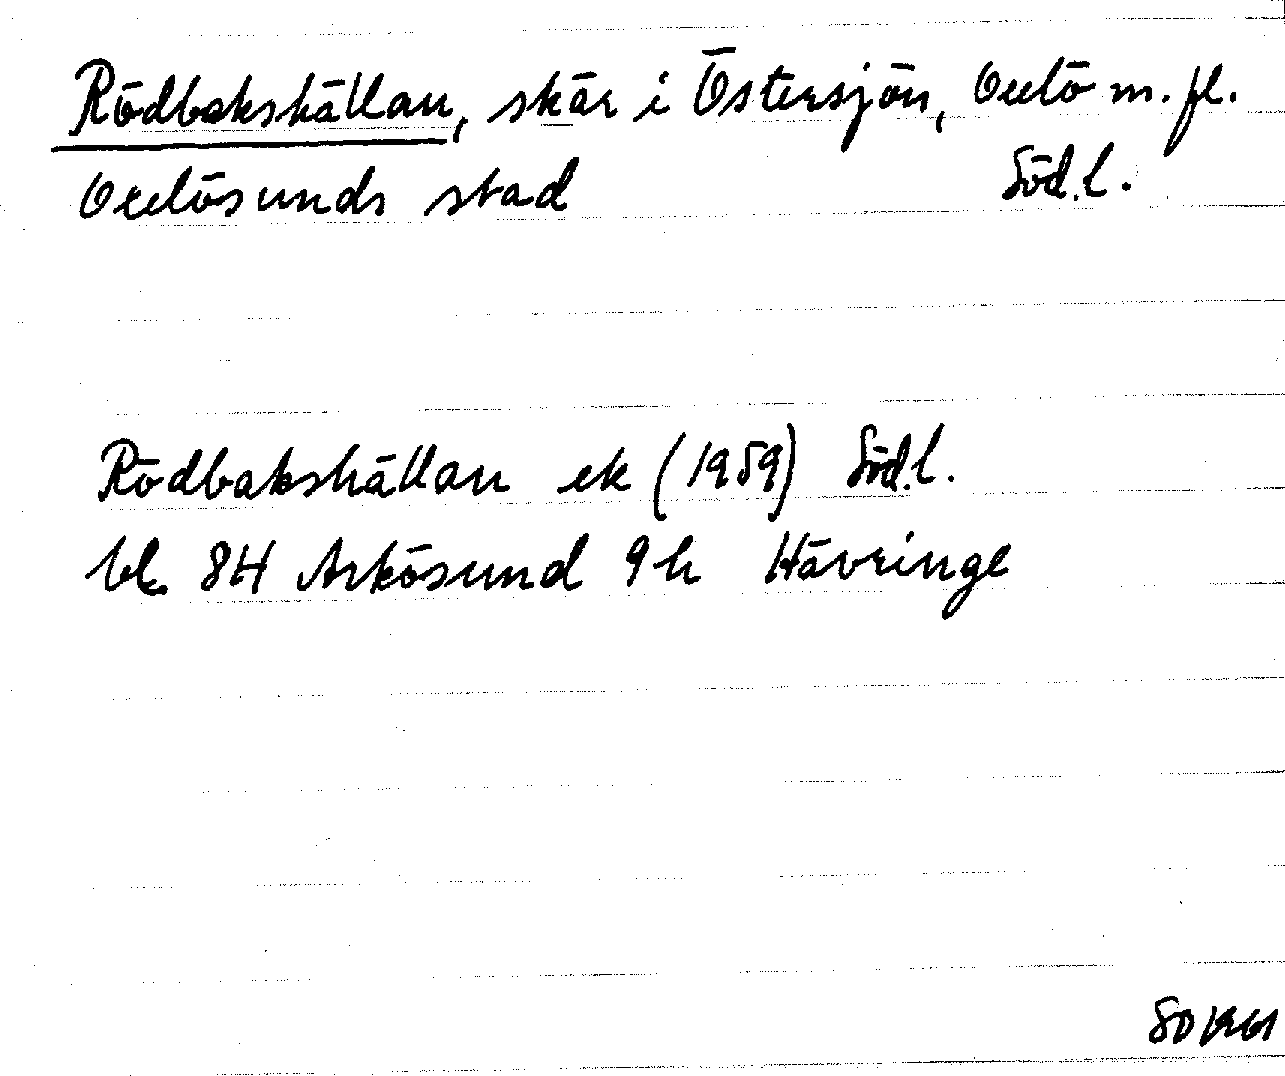 Rödbakshällan, skär i Östersjön, Oxelö m.fl.
Oxelösunds stad Södl.
Rödbakshällan ek (1959) Södl.
bl. 8H Arkösund 9h Hävringe